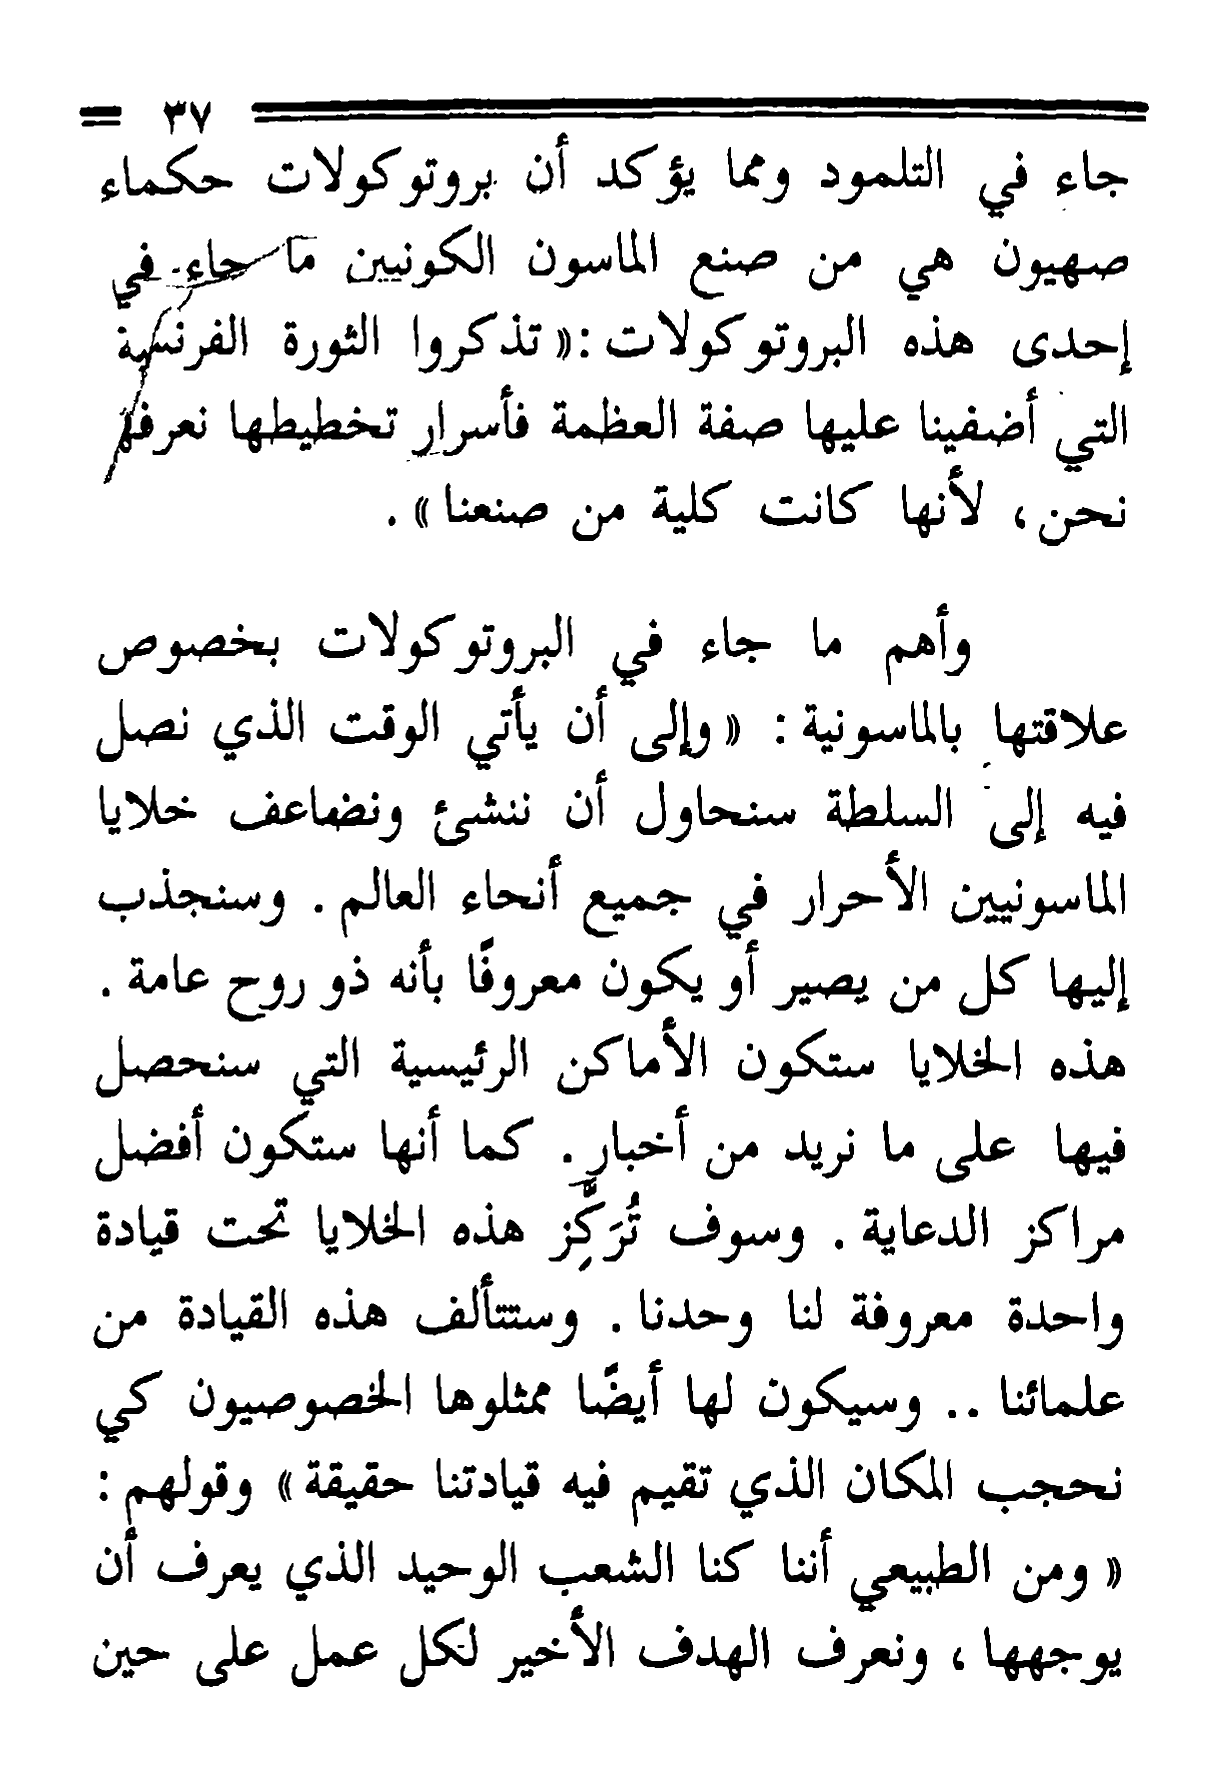 ٣٧
جاء في التلمود ومما يؤكد أن بروتوكولات حكماء
صهيون هي من صنع الماسون الكونيين ما جاء في
إحدى هذه البروتوكولات :« تذكروا الثورة الفرنسية
التي أضفينا عليها صفة العظمة فأسرار تخطيطها نعرفها
نحن ، لأنها كانت كلية من صنعنا » .
وأهم ما جاء في البروتوكولات بخصوص
علاقتها بالماسونية : « وإلى أن يأتي الوقت الذي نصل
فيه إلى السلطة سنحاول أن ننشئ ونضاعف خلايا
الماسونيين الأحرار في جميع أنحاء العالم . وسنجذب
إليها كل من يصير أو يكون معروفًا بأنه ذو روح عامة .
هذه الخلايا ستكون الأماكن الرئيسية التي سنحصل
فيها على ما نريد من أخبار . كما أنها ستكون أفضل
مراكز الدعاية . وسوف تُرَكَّز هذه الخلايا تحت قيادة
واحدة معروفة لنا وحدنا . وستتألف هذه القيادة من
علمائنا .. وسيكون لها أيضًا ممثلوها الخصوصيون كي
نحجب المكان الذي تقيم فيه قيادتنا حقيقة » وقولهم :
« ومن الطبيعي أننا كنا الشعب الوحيد الذي يعرف أن
يوجهها ، ونعرف الهدف الأخير لكل عمل على حين